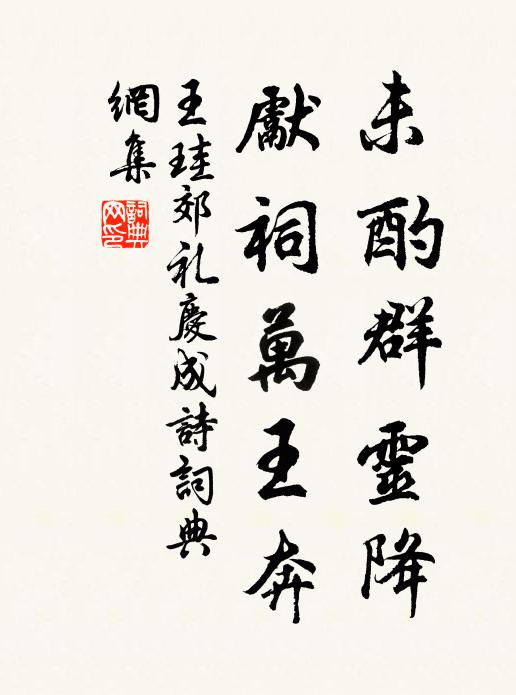 未酌群靈降
獻祠萬王奔
王珪郊礼慶成詩詞典
網集
詞典網印